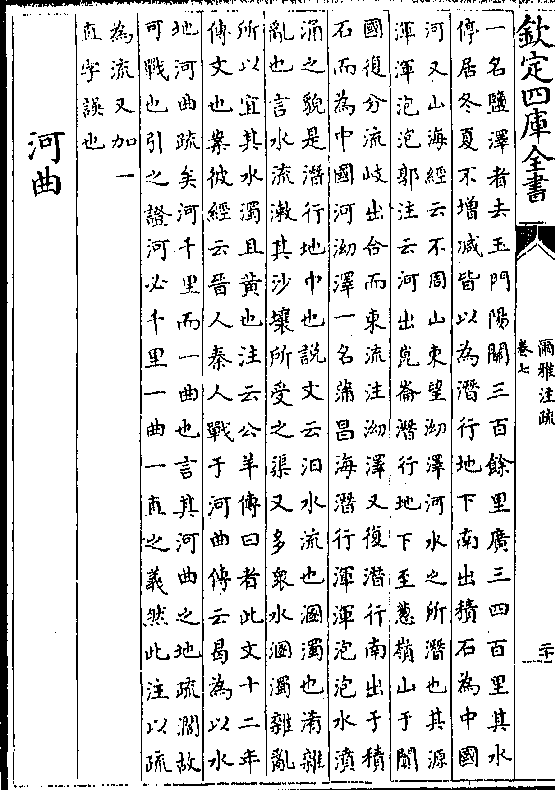 欽定四庫全書
爾雅注疏
卷七
二十
一名鹽澤者去玉門陽關三百餘里廣三四百里其水
停居冬夏不增減皆以為潛行地下南出積石為中國
河又山海經云不周山東望泑澤河水之所潛也其源
渾渾泡泡郭注云河出崑崙潛行地下至蔥嶺山于闐
國復分流岐出合而東流注泑澤又復潛行南出于積
石而為中國河泑澤一名蒲昌海潛行渾渾泡泡水濆
涌之貌是潛行地中也說文云汩水流也溷濁也淆雜
亂也言水流漱其沙壤所受之渠又多衆水溷濁雜亂
所以宜其水濁且黃也注云公羊傳曰者此文十二年
傳文也案彼經云晉人秦人戰于河曲傳云曷為以水
地河曲疏矣河千里而一曲也言其河曲之地疏濶故
可戰也引之證河必千里一曲一直之義然此注以疏
為流又加一
直字誤也
河曲